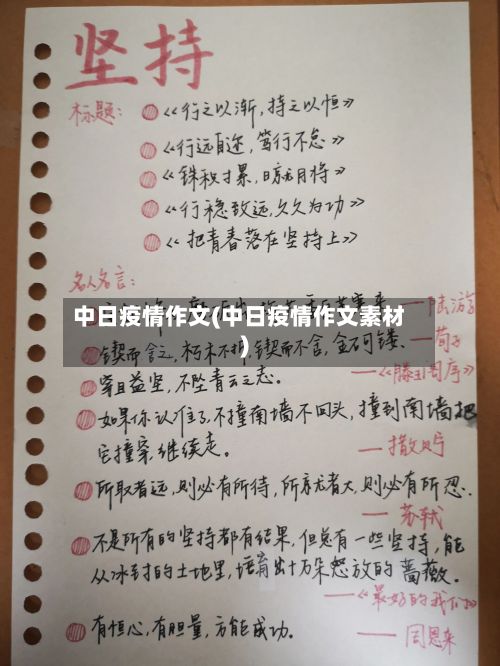 坚持
标题：《行之以渐，持之以恒》
《行远自迩，笃行不怠》
《铢积寸累，日就月将》
《行稳致远，久久为功》
《把青春落在坚持上》
名人名言：
——陆游
中日疫情作文(中日疫情作文素材
)
锲而舍之，朽木不折，锲而不舍，金石可镂。——荀子
穷且益坚，不坠青云之志。——《滕王阁序》
如果你认准了，不撞南墙不回头，撞到南墙把
它撞穿，继续走。——撒贝宁
所取者远，则必有所待，所就者大，则必有所忍。
——苏轼
不是所有的坚持都有结果，但总有一些坚持，能
从冰封的土地里，培育出十万朵怒放的蔷薇。
——《最好的我们》
有恒心，有胆量，方能成功。——周恩来